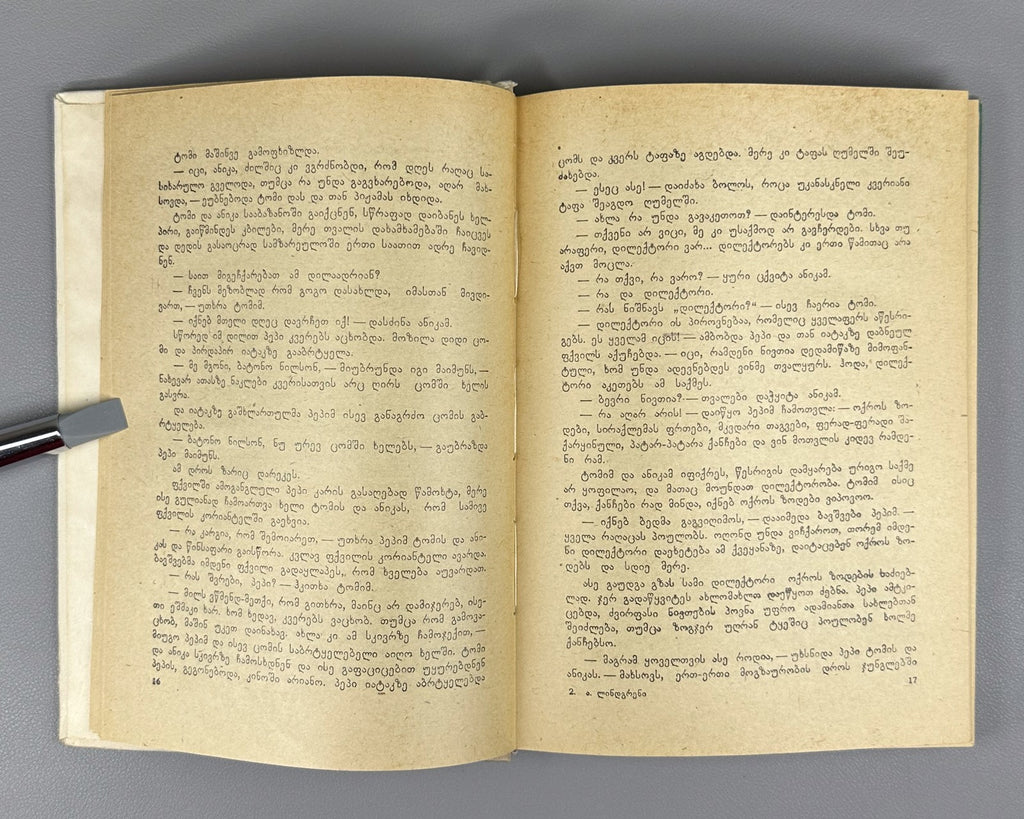 ტომი მაშინვე გამოფხიზლდა.
— იცი, ანიკა, ძილშიც კი ვგრძნობდი, რომ დღეს რაღაც სა-
სიხარულო გველოდა, თუმცა რა უნდა გაგვხარებოდა, აღარ მახ-
სოვდა, — ეუბნებოდა ტომი დას და თან პიჟამას იხდიდა.
ტომი და ანიკა სააბაზანოში გაიქცნენ, სწრაფად დაიბანეს ხელ-
პირი, გაიწმინდეს კბილები, მერე თვალის დახამხამებაში ჩაიცვეს
და დედის გასაოცრად სამზარეულოში ერთი საათით ადრე ჩავიდ-
ნენ.
— საით მიგეჩქარებათ ამ დილაადრიან?
— ჩვენს მეზობლად რომ გოგო დასახლდა, იმასთან მივდი-
ვართ, — უთხრა ტომიმ.
— იქნებ მთელი დღეც დავრჩეთ იქ! — დასძინა ანიკამ.
სწორედ იმ დილით პეპი კვერებს აცხობდა. მოზილა დიდი ცო-
მი და პირდაპირ იატაკზე გააბრტყელა.
— მე მგონი, ბატონო ნილსონ, — მიუბრუნდა იგი მაიმუნს, —
ნახევარ ათასზე ნაკლები კვერისათვის არც ღირს ცომში ხელის
გასვრა.
და იატაკზე გაშხლართულმა პეპიმ ისევ განაგრძო ცომის გაბ-
რტყელება.
— ბატონო ნილსონ, ნუ ურევ ცომში ხელებს, — გაუბრაზდა
პეპი მაიმუნს.
ამ დროს ზარიც დარეკეს.
ფქვილში ამოგანგლული პეპი კარის გასაღებად წამოხტა, მერე
ისე გულიანად ჩამოართვა ხელი ტომის და ანიკას, რომ სამივე
ფქვილის კორიანტელში გაეხვია.
— რა კარგია, რომ შემოიარეთ, — უთხრა პეპიმ ტომის და ანი-
კას და წინსაფარი გაისწორა. კვლავ ფქვილის კორიანტელი ავარდა.
ბავშვებმა იმდენი ფქვილი გადაყლაპეს, რომ ხველება აუვარდათ.
— რას შვრები, პეპი? — ჰკითხა ტომიმ.
— მილს ვწმენდ-მეთქი, რომ გითხრა, მაინც არ დამიჯერებ, ისე-
თი ეშმაკი ხარ. ხომ ხედავ, კვერებს ვაცხობ. თუმცა რომ გამოვა-
ცხობ, მაშინ უკეთ დაინახავ. ახლა კი ამ სკივრზე ჩამოჯექით, —
მიუგო პეპიმ და ისევ ცომის საბრტყელებელი აიღო ხელში. ტომი
და ანიკა სკივრზე ჩამოსხდნენ და ისე გაფაციცებით უყურებდნენ
პეპის, გეგონებოდა, კინოში არიანო. პეპი იატაკზე აბრტყელებდა
16
ცომს და კვერს ტაფაზე აგდებდა. მერე კი ტაფას ღუმელში შეუ-
ძახებდა.
— ესეც ასე! — დაიძახა ბოლოს, როცა უკანასკნელი კვერიანი
ტაფა შეაგდო ღუმელში.
— ახლა რა უნდა გავაკეთოთ? — დაინტერესდა ტომი.
— თქვენი არ ვიცი, მე კი უსაქმოდ არ გავჩერდები. სხვა თუ
არაფერი, დილექტორი ვარ... დილექტორებს კი ერთი წამითაც არა
აქვთ მოცლა.
— რა თქვი, რა ვარო? — ყური ცქვიტა ანიკამ.
— რა და დილექტორი.
— რას ნიშნავს „დილექტორი?“ — ისევ ჩაერია ტომი.
— დილექტორი ის პიროვნებაა, რომელიც ყველაფერს აწესრი-
გებს. ეს ყველამ იცის! — ამბობდა პეპი და თან იატაკზე დაბნეულ
ფქვილს აქუჩებდა. — იცი, რამდენი ნივთია დედამიწაზე მიმოფან-
ტული, ხომ უნდა ადევნებდეს ვინმე თვალყურს. ჰოდა, დილექ-
ტორი აკეთებს ამ საქმეს.
— ბევრი ნივთია? — თვალები დაჭყიტა ანიკამ.
— რა აღარ არის! — დაიწყო პეპიმ ჩამოთვლა: — ოქროს ზო-
დები, სირაქლემას ფრთები, მკვდარი თაგვები, ფერად-ფერადი შა-
ქარყინული, პატარ-პატარა ქანჩები და ვინ მოთვლის კიდევ რამდე-
ნი რამ.
ტომიმ და ანიკამ იფიქრეს, წესრიგის დამყარება ურიგო საქმე
არ ყოფილაო, და მათაც მოუნდათ დილექტორობა. ტომიმ ისიც
თქვა, ქანჩები რად მინდა, იქნებ ოქროს ზოდები ვიპოვოო.
— იქნებ ბედმა გაგვიღიმოს, — დააიმედა ბავშვები პეპიმ. —
ყველა რაღაცას პოულობს. ოღონდ უნდა ვიჩქაროთ, თორემ იმდე-
ნი დილექტორი დაეხეტება ამ ქვეყანაზე, დაიტაცებენ ოქროს ზო-
დებს და სდიე მერე.
ასე გაუდგა გზას სამი დილექტორი ოქროს ზოდების საძიებ-
ლად. ჯერ გადაწყვიტეს ახლომახლო დაეწყოთ ძებნა. პეპი ამტკი-
ცებდა, ძვირფასი ნივთების პოვნა უფრო ადამიანთა სახლებთან
შეიძლება, თუმცა ზოგჯერ უღრან ტყეშიც პოულობენ ხოლმე
ქანჩებსო.
— მაგრამ ყოველთვის ასე როდია, — უხსნიდა პეპი ტომის და
ანიკას. — მახსოვს, ერთ-ერთი მოგზაურობის დროს ჯუნგლებში
2. ა. ლინდგრენი
17